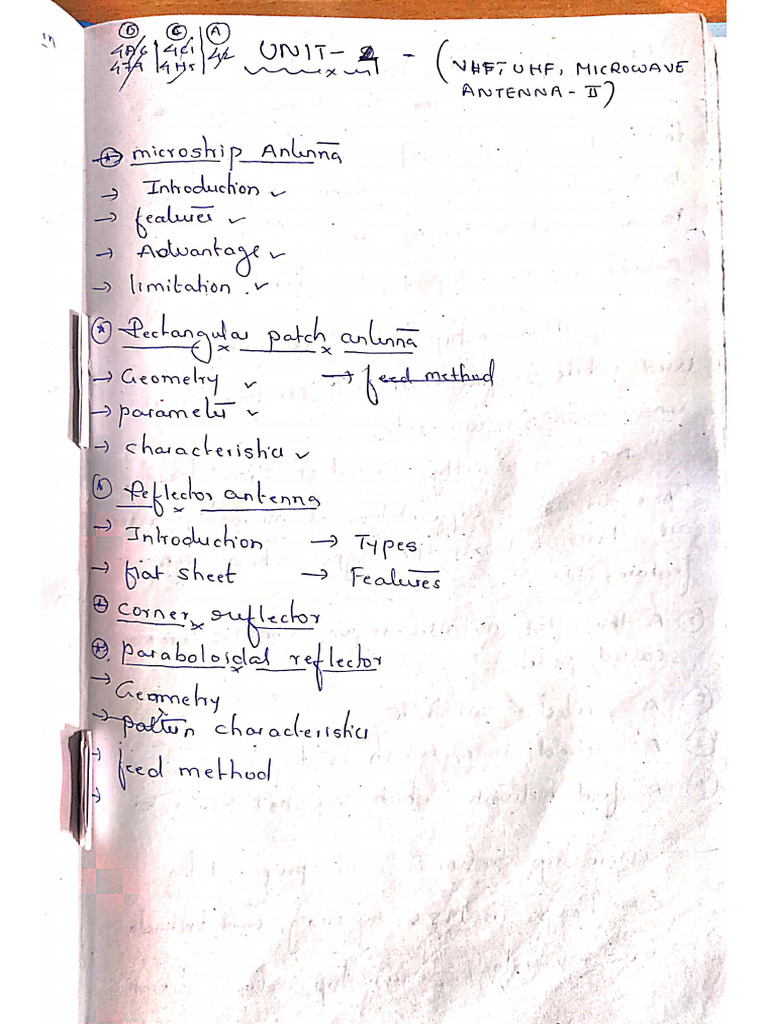 D C A
UNIT-2 - (VHF, UHF, MICROWAVE
ANTENNA - II)
microstrip Antenna
→ Introduction ✓
→ features ✓
→ Advantage ✓
→ limitation. ✓
Rectangular patch antenna
→ Geometry ✓ → feed method
→ parameter ✓
→ characteristics ✓
Reflector antenna
→ Introduction → Types
→ flat sheet → Features
corner reflector
Paraboloidal reflector
→ Geometry
→ pattern characteristics
→ feed method
→